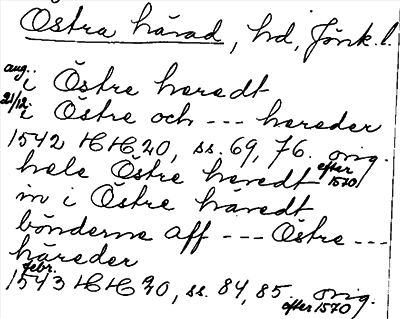 Östra härad, hd, Jönk. l.
aug. i Östre heredt
21/12. i Östre och --- hereder
1542 HH 20, ss. 69, 76. orig. efter 1570
hele Östre heredt
in i Östre haredt
bönderne aff --- Östre ---
häreder
febr.
1543 HH 20, ss. 84, 85. orig. efter 1570